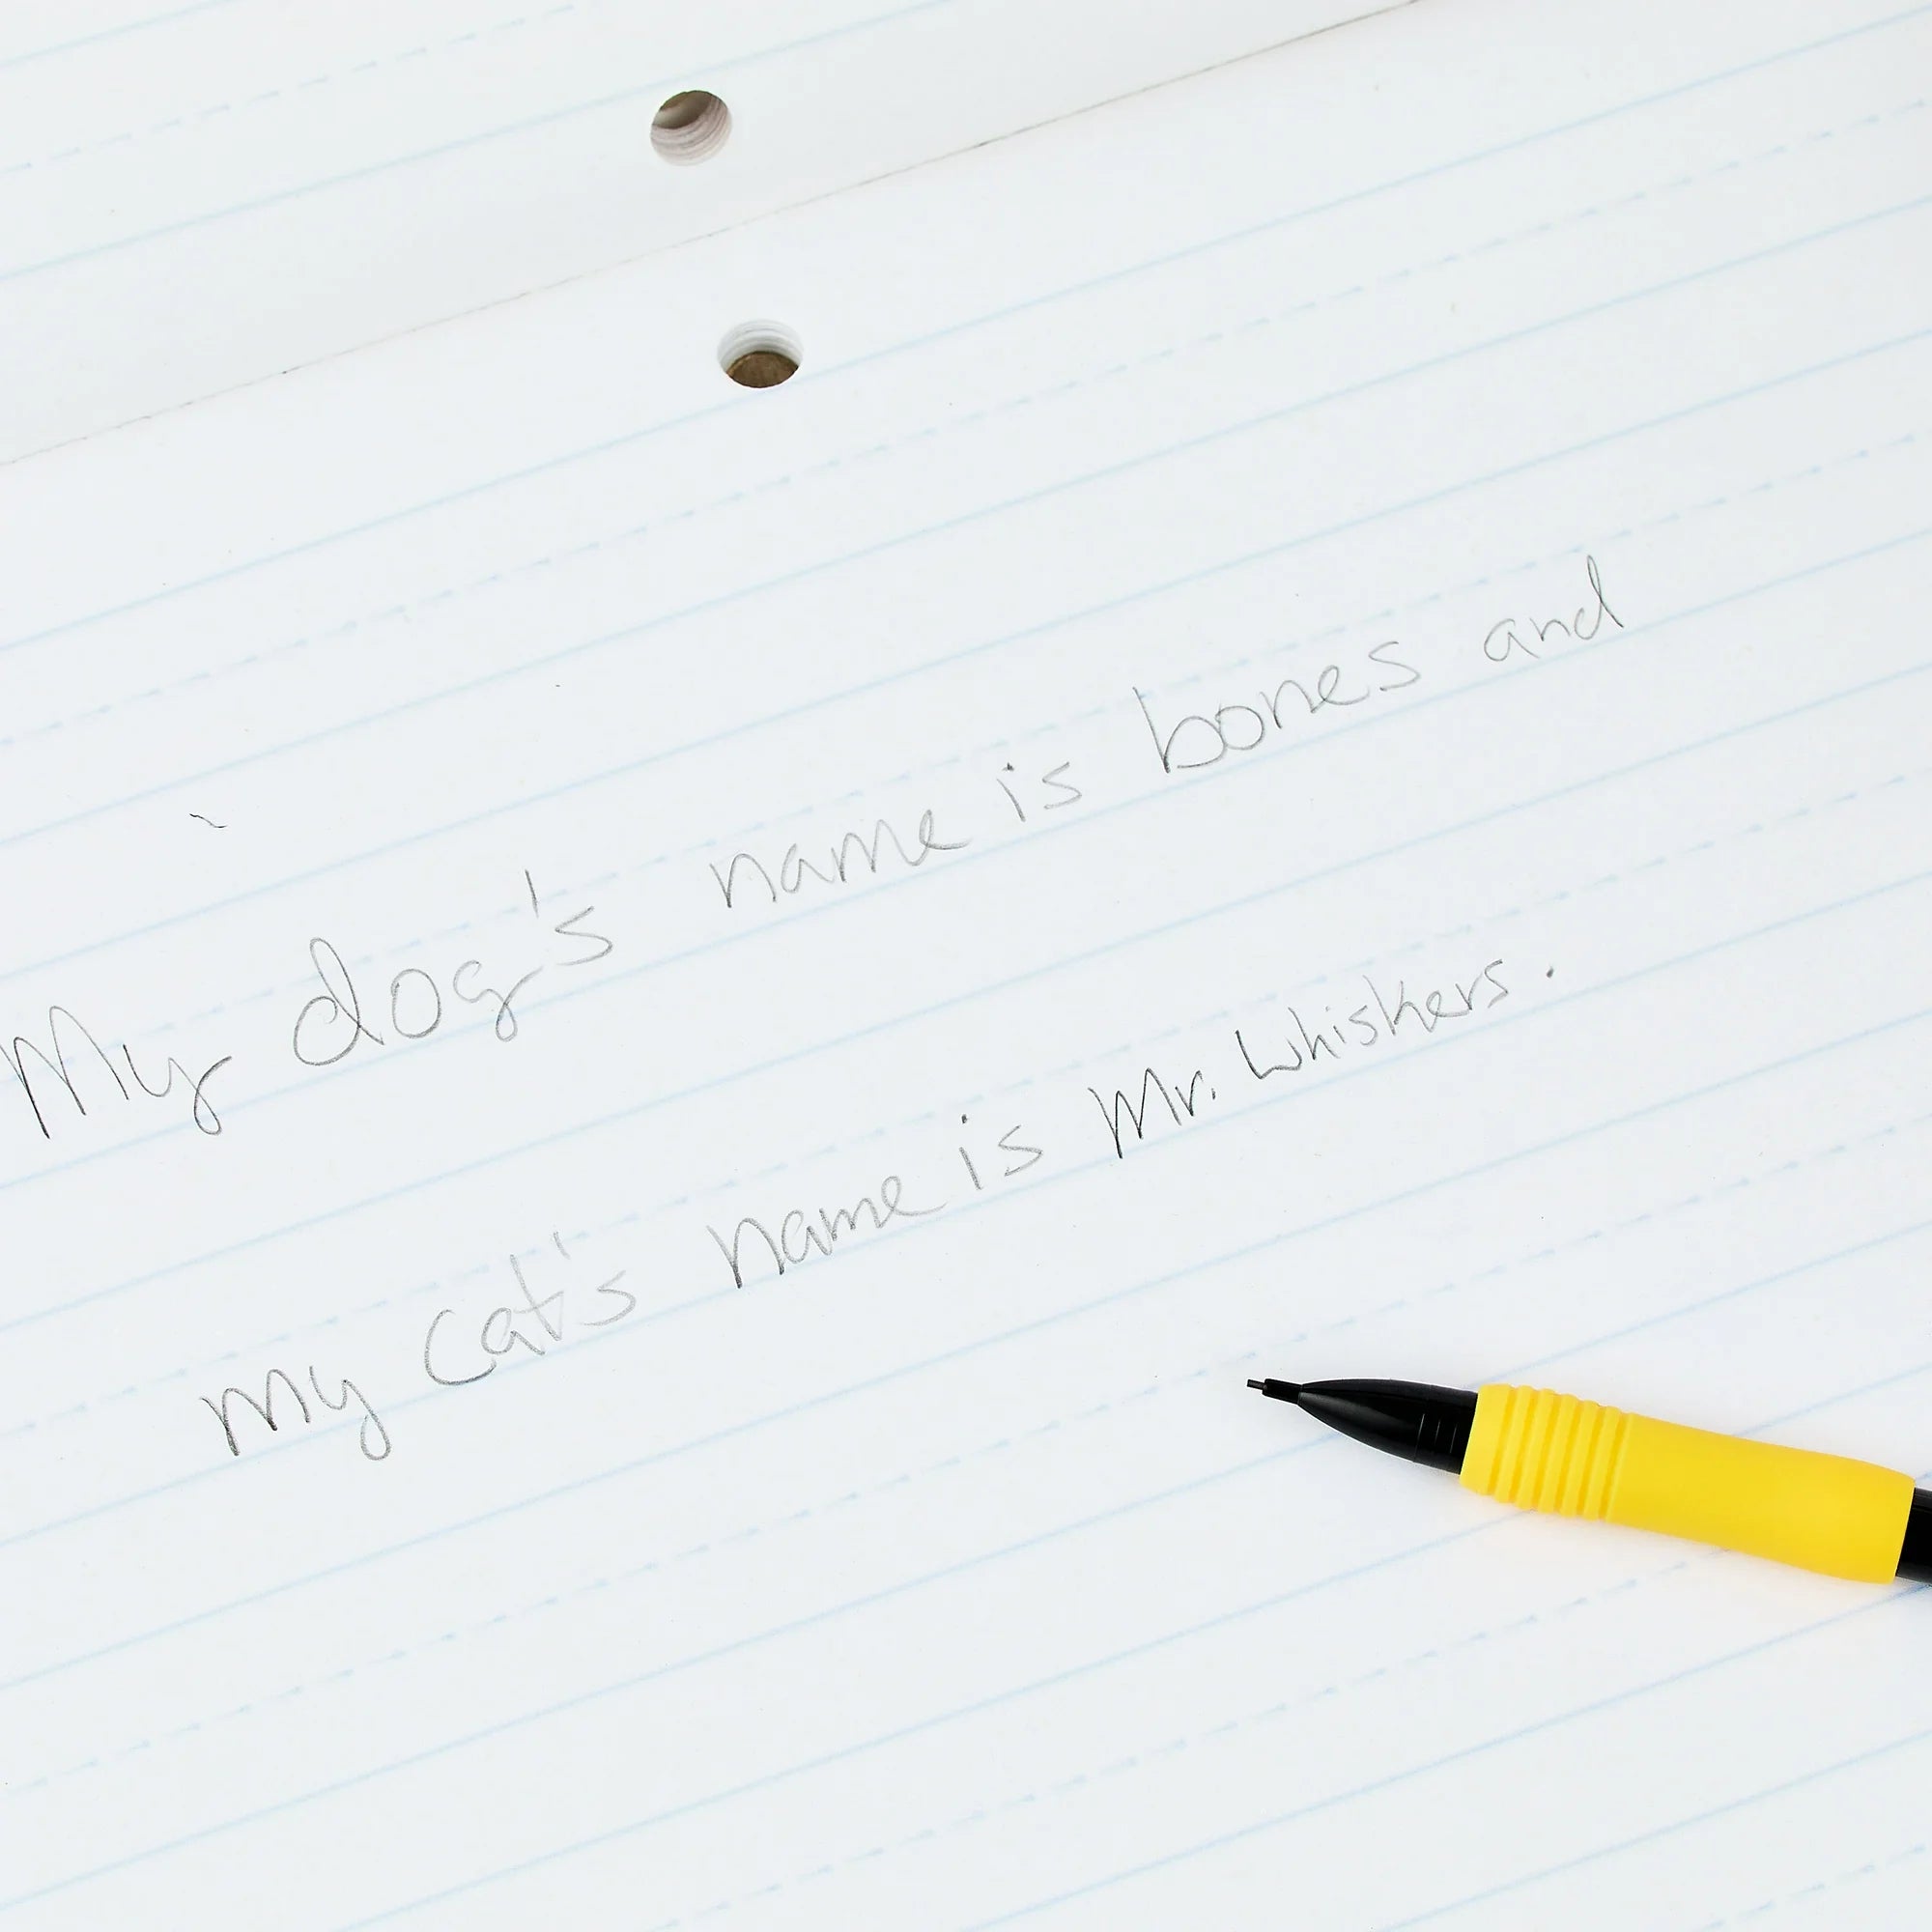 My dog's name is bones and
my cat's name is Mr. Whiskers.